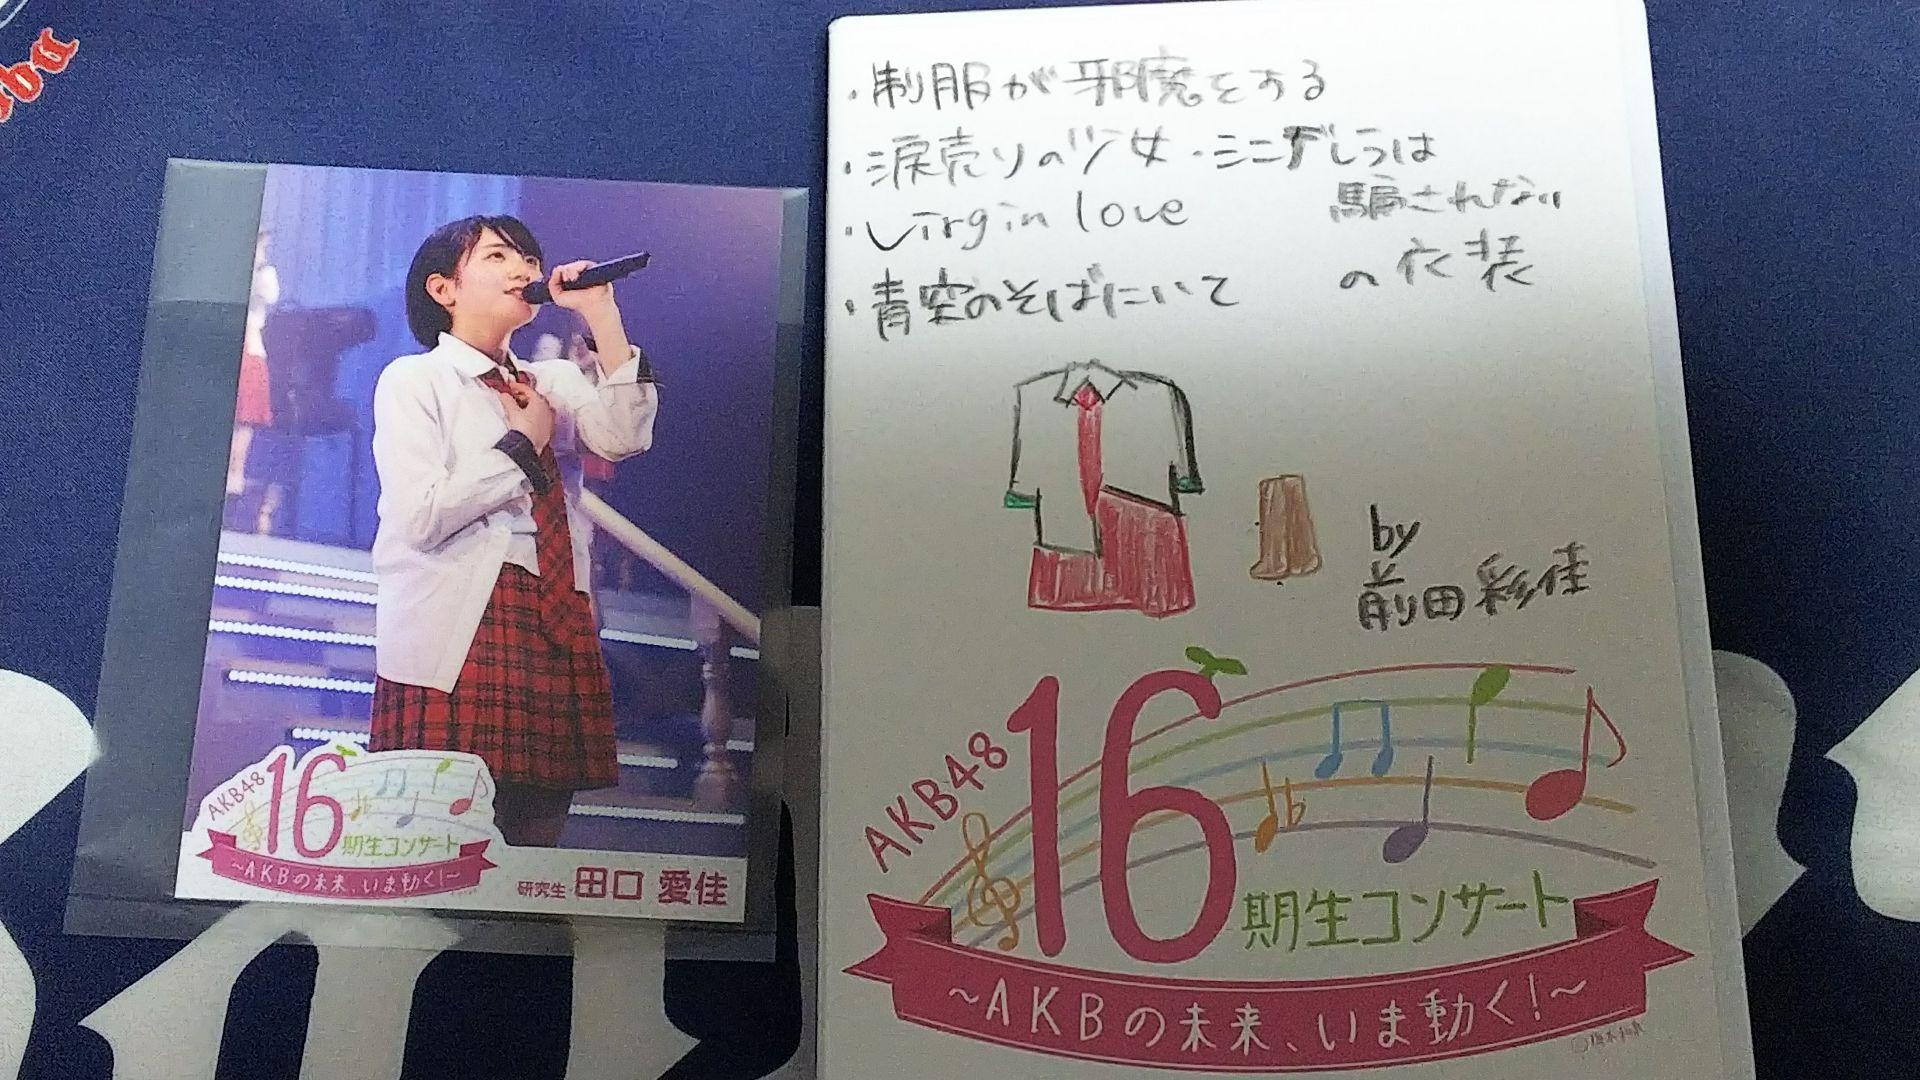 ・制服が邪魔をする
・涙売りの少女・シンデレラは
騙されない
の衣装
・Virgin love
・青空のそばにいて
by
前田彩佳
AKB48
16
期生コンサート
~AKBの未来、いま動く!~
AKB48
16
期生コンサート
~AKBの未来、いま動く!~
研究生 田口 愛佳